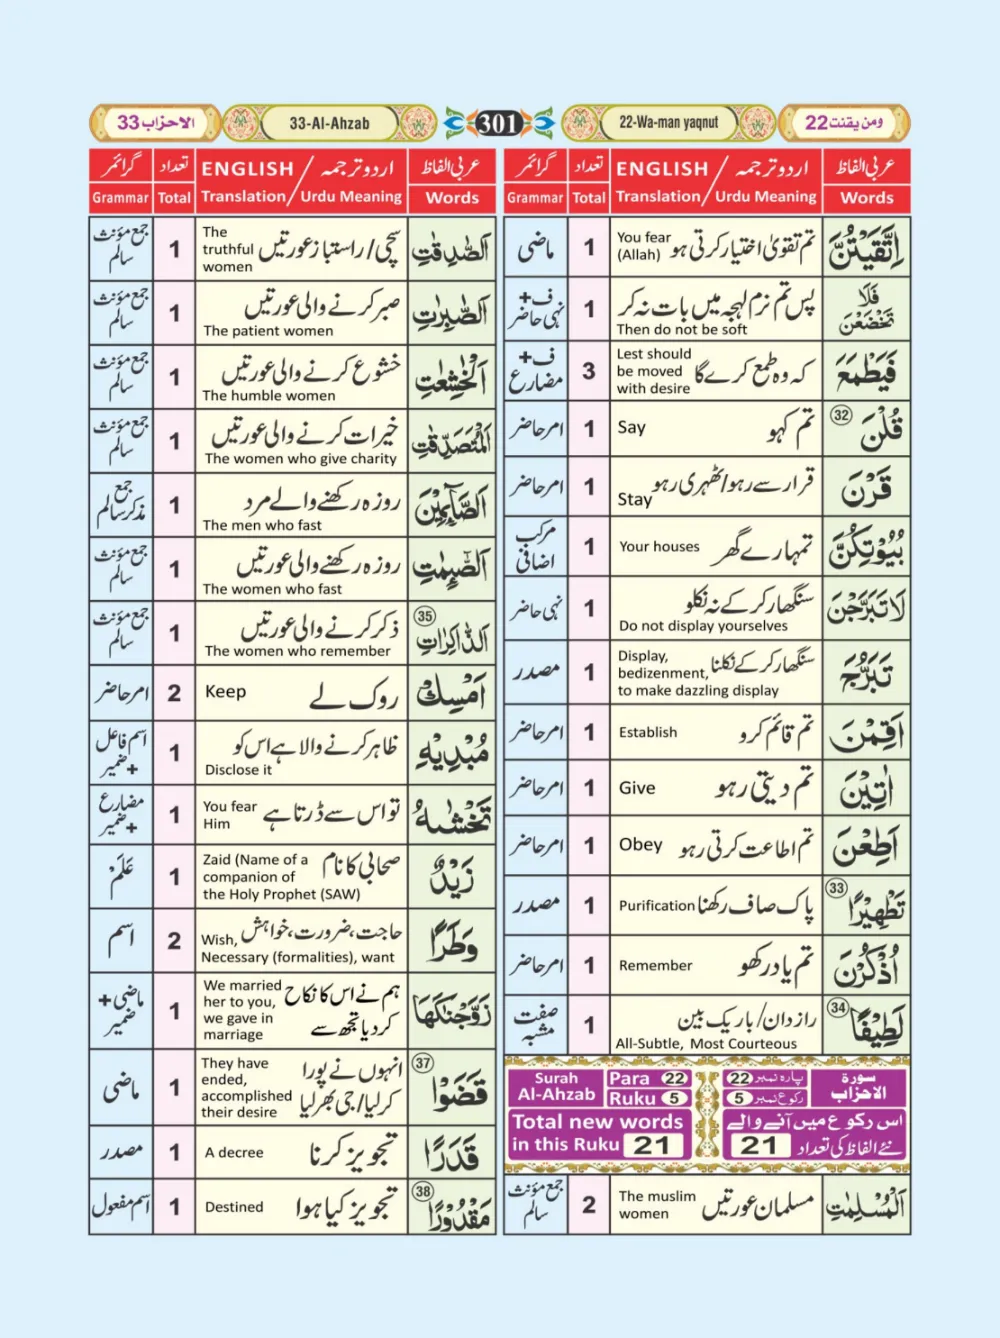 الاحزاب 33
33-Al-Ahzab
301
22-Wa-man yaqnut
ومن يقنت 22
عربی الفاظ اردو ترجمہ / ENGLISH تعداد گرائمر
Words Urdu Meaning / Translation Total Grammar
اِتَّقَيْتُنَّ تم تقویٰ اختیار کرتی ہو You fear (Allah) 1 ماضی
فَلَا تَخْضَعْنَ پس تم نرم لہجہ میں بات نہ کر Then do not be soft 1 ف+ نہی حاضر
فَيَطْمَعَ کہ وہ طمع کرے گا Lest should be moved with desire 3 ف+ مضارع
قُلْنَ 32 تم کہو Say 1 امر حاضر
قَرْنَ قرار سے رہو/ٹھہری رہو Stay 1 امر حاضر
بُيُوْتِكُنَّ تمہارے گھر Your houses 1 مرکب اضافی
لَا تَبَرَّجْنَ سنگھار کر کے نہ نکلو Do not display yourselves 1 نہی حاضر
تَبَرُّجَ سنگھار کر کے نکلنا Display, bedizenment, to make dazzling display 1 مصدر
اَقِمْنَ تم قائم کرو Establish 1 امر حاضر
اٰتِيْنَ تم دیتی رہو Give 1 امر حاضر
اَطِعْنَ تم اطاعت کرتی رہو Obey 1 امر حاضر
تَطْهِيْرًا 33 پاک صاف رکھنا Purification 1 مصدر
اُذْكُرْنَ تم یاد رکھو Remember 1 امر حاضر
لَطِيْفًا 34 رازدان/باریک بین All-Subtle, Most Courteous 1 صفت مشبہ
Surah Al-Ahzab Para 22 Ruku 5
پارہ نمبر 22 رکوع نمبر 5 سورة الاحزاب
Total new words in this Ruku 21
اس رکوع میں آنے والے نئے الفاظ کی تعداد 21
اَلْمُسْلِمٰتِ مسلمان عورتیں The muslim women 2 جمع مؤنث سالم
عربی الفاظ اردو ترجمہ / ENGLISH تعداد گرائمر
Words Urdu Meaning / Translation Total Grammar
اَلصّٰدِقٰتِ سچی/راستباز عورتیں The truthful women 1 جمع مؤنث سالم
اَلصّٰبِرٰتِ صبر کرنے والی عورتیں The patient women 1 جمع مؤنث سالم
اَلْخٰشِعٰتِ خشوع کرنے والی عورتیں The humble women 1 جمع مؤنث سالم
اَلْمُتَصَدِّقٰتِ خیرات کرنے والی عورتیں The women who give charity 1 جمع مؤنث سالم
اَلصَّآئِمِيْنَ روزہ رکھنے والے مرد The men who fast 1 جمع مذکر سالم
اَلصّٰٓئِمٰتِ روزہ رکھنے والی عورتیں The women who fast 1 جمع مؤنث سالم
اَلذَّاكِرَاتِ 35 ذکر کرنے والی عورتیں The women who remember 1 جمع مؤنث سالم
اَمْسِكْ روک لے Keep 2 امر حاضر
مُبْدِيْهِ ظاہر کرنے والا ہے اس کو Disclose it 1 اسم فاعل + ضمیر
تَخْشٰىهُ تو اس سے ڈرتا ہے You fear Him 1 مضارع + ضمیر
زَيْدٌ صحابی کا نام Zaid (Name of a companion of the Holy Prophet (SAW) 1 عَلَم
وَطَرًا حاجت، ضرورت، خواہش Wish, Necessary (formalities), want 2 اسم
زَوَّجْنٰكَهَا ہم نے اس کا نکاح کر دیا تجھ سے We married her to you, we gave in marriage 1 ماضی + ضمیر
قَضَوْا 37 انہوں نے پورا کر لیا/جی بھر لیا They have ended, accomplished their desire 1 ماضی
قَدَرًا تجویز کرنا A decree 1 مصدر
مَقْدُوْرًا 38 تجویز کیا ہوا Destined 1 اسم مفعول